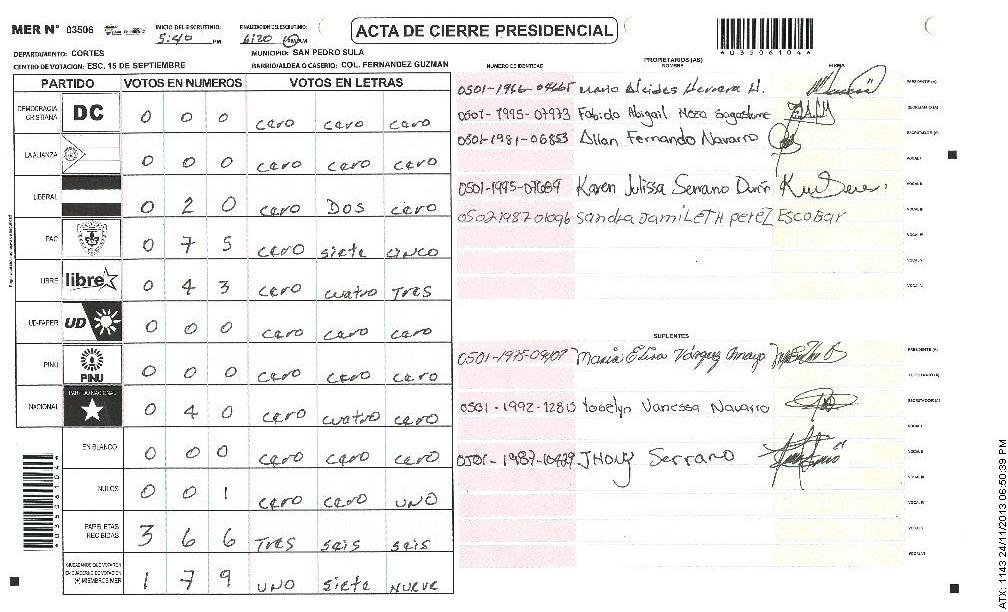 MER N° 03506 INICIO DEL ESCRUTINIO: 5:40 PM FINALIZACIÓN DEL ESCRUTINIO: 6:20 PM/AM ACTA DE CIERRE PRESIDENCIAL
*03506104*
DEPARTAMENTO: CORTES MUNICIPIO: SAN PEDRO SULA
CENTRO DE VOTACION: ESC. 15 DE SEPTIEMBRE BARRIO/ALDEA O CASERIO: COL. FERNANDEZ GUZMAN
PARTIDO VOTOS EN NUMEROS VOTOS EN LETRAS
DEMOCRACIA CRISTIANA DC 0 0 0 cero cero cero
LA ALIANZA 0 0 0 cero cero cero
LIBERAL 0 2 0 cero DOS cero
PAC 0 7 5 cero siete cinco
LIBRE libre 0 4 3 cero cuatro Tres
UD-FAPER UD 0 0 0 cero cero cero
PINU PINU 0 0 0 cero cero cero
NACIONAL PARTIDO NACIONAL 0 4 0 cero cuatro cero
EN BLANCO 0 0 0 cero cero cero
NULOS 0 0 1 cero cero uno
PAPELETAS RECIBIDAS 3 6 6 Tres seis seis
CIUDADANOS QUE VOTARON EN CUADERNO DE VOTACION (+) MIEMBROS MER 1 7 9 uno siete nueve
PROPIETARIOS (AS)
NUMERO DE IDENTIDAD NOMBRE FIRMA
0501-1966-04665 Mario Alcides Herrera H. PRESIDENTE (A)
0501-1995-07973 Fabiola Abigail Meza Sagastume SECRETARIO (A)
0501-1981-06853 Allan Fernando Navarro ESCRUTADOR (A)
VOCAL I
0501-1995-07689 Karen Julissa Serrano Durón VOCAL II
0502198701096 Sandra Jamileth perez Escobar VOCAL III
VOCAL IV
VOCAL V
VOCAL VI
SUPLENTES
0501-1975-09107 Maria Elisa Vásquez Amaya PRESIDENTE (A)
SECRETARIO (A)
0501-1992-12815 Yocelyn Vanessa Navarro ESCRUTADOR (A)
VOCAL I
0501-1987-10479 Jhony Serrano VOCAL II
VOCAL III
VOCAL IV
VOCAL V
VOCAL VI
ATX: 1143 24/11/2013 06:50:39 PM